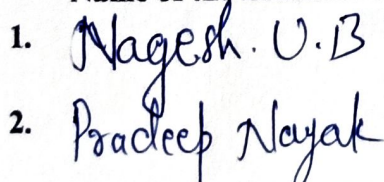 1. Nagesh. U.B
2. Pradeep Nayak